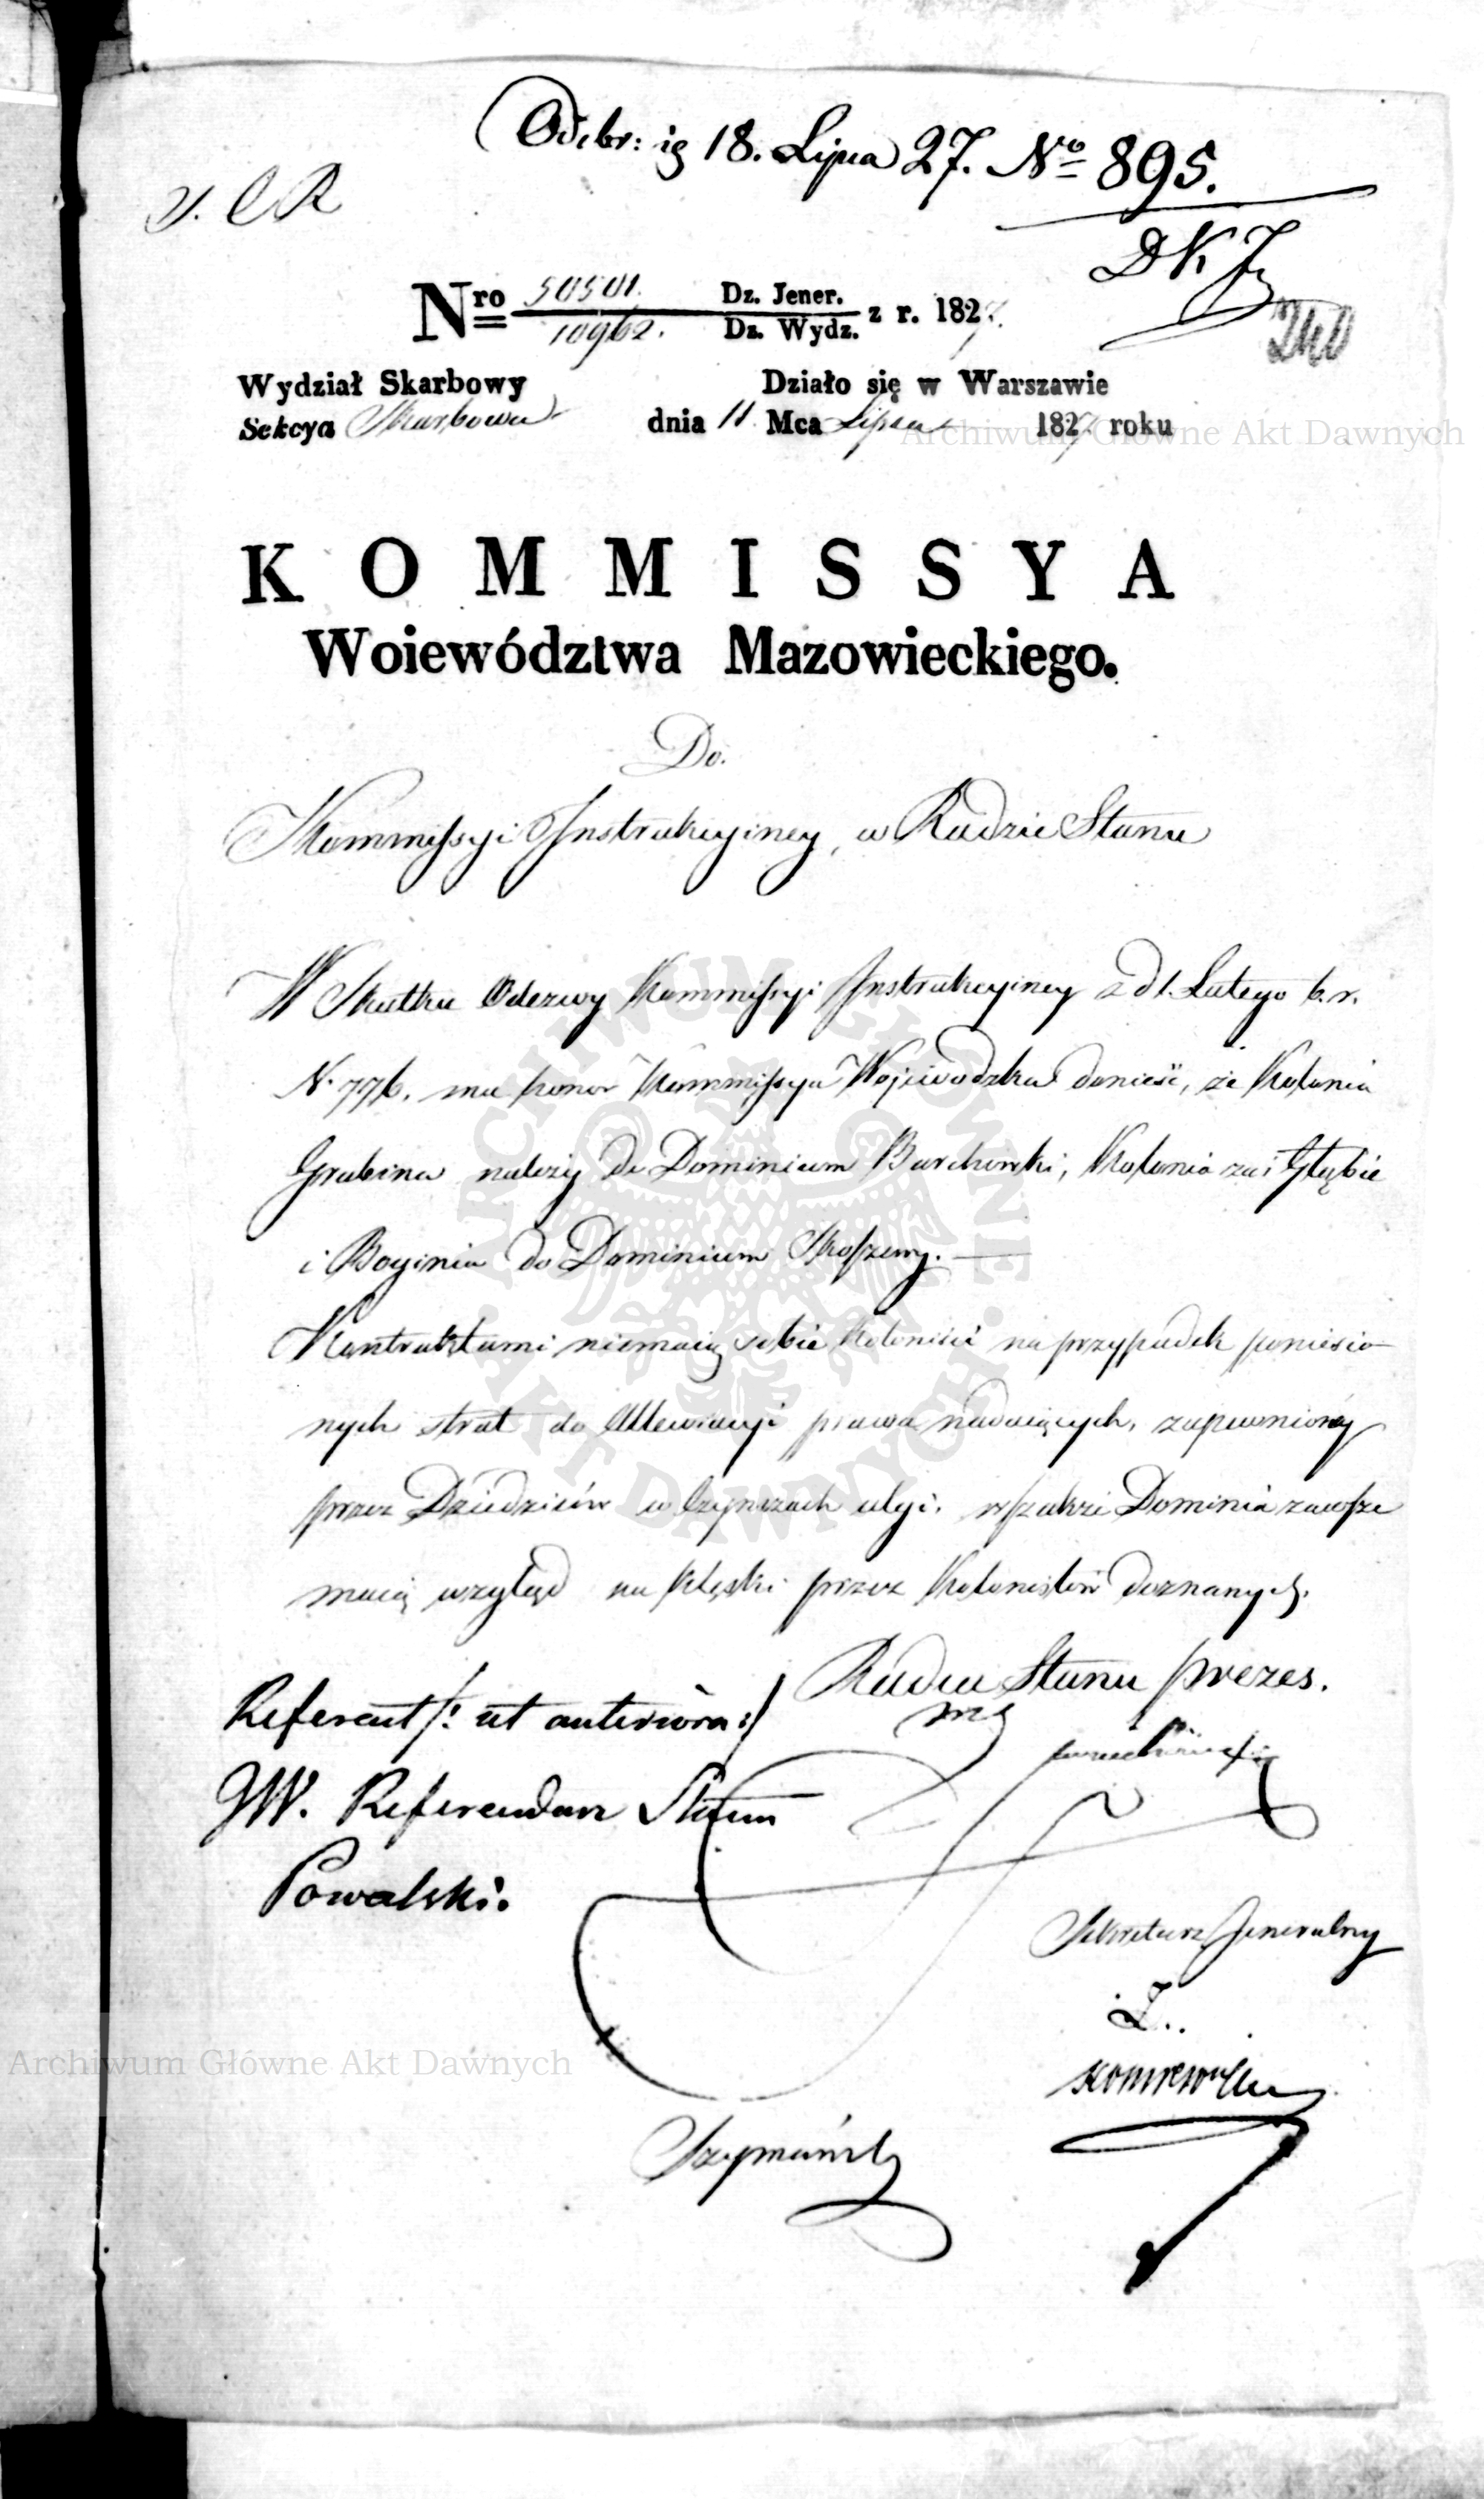 Odebr: ig 18. Lipca 27. No 895.
DKJ
240
Nro 50501. Dz. Jener.
10962. Dz. Wydz. z r. 1827.
Wydział Skarbowy
Działo się w Warszawie
Sekcya Skarbowa
dnia 11 Mca Lipca 1827 roku
Archiwum Główne Akt Dawnych
KOMMISSYA
Woiewództwa Mazowieckiego.
Do.
Kommissyi Instrukcyiney, w Radzie Stanu
W Skutku Odezwy Kommissyi Instrukcyiney z d 1. Lutego b. r.
N. 776. ma honor Kommissya Wojewodzka donieść, że Kolonia
Grabina należy do Dominium Borchowki, Kolonia zaś Głąbie
i Boginia do Dominium Skoszewy.
Kontraktami niemaią sobie Koloniści na przypadek poniesio-
nych strat do Allewiacyi prawa nadaiących, zapewnioney
przez Dziedziców w Czynszach ulgi. wszakże Dominia zawsze
maią wzgląd na klęski przez Kolonistów doznanych.
Radca Stanu prezes.
Referent /: ut anteriora :/
JW. Referendarz Stanu
Powalski.
Sekretarz Jeneralny
Szymański
Archiwum Główne Akt Dawnych
ARCHIWUM GŁÓWNE AKT DAWNYCH